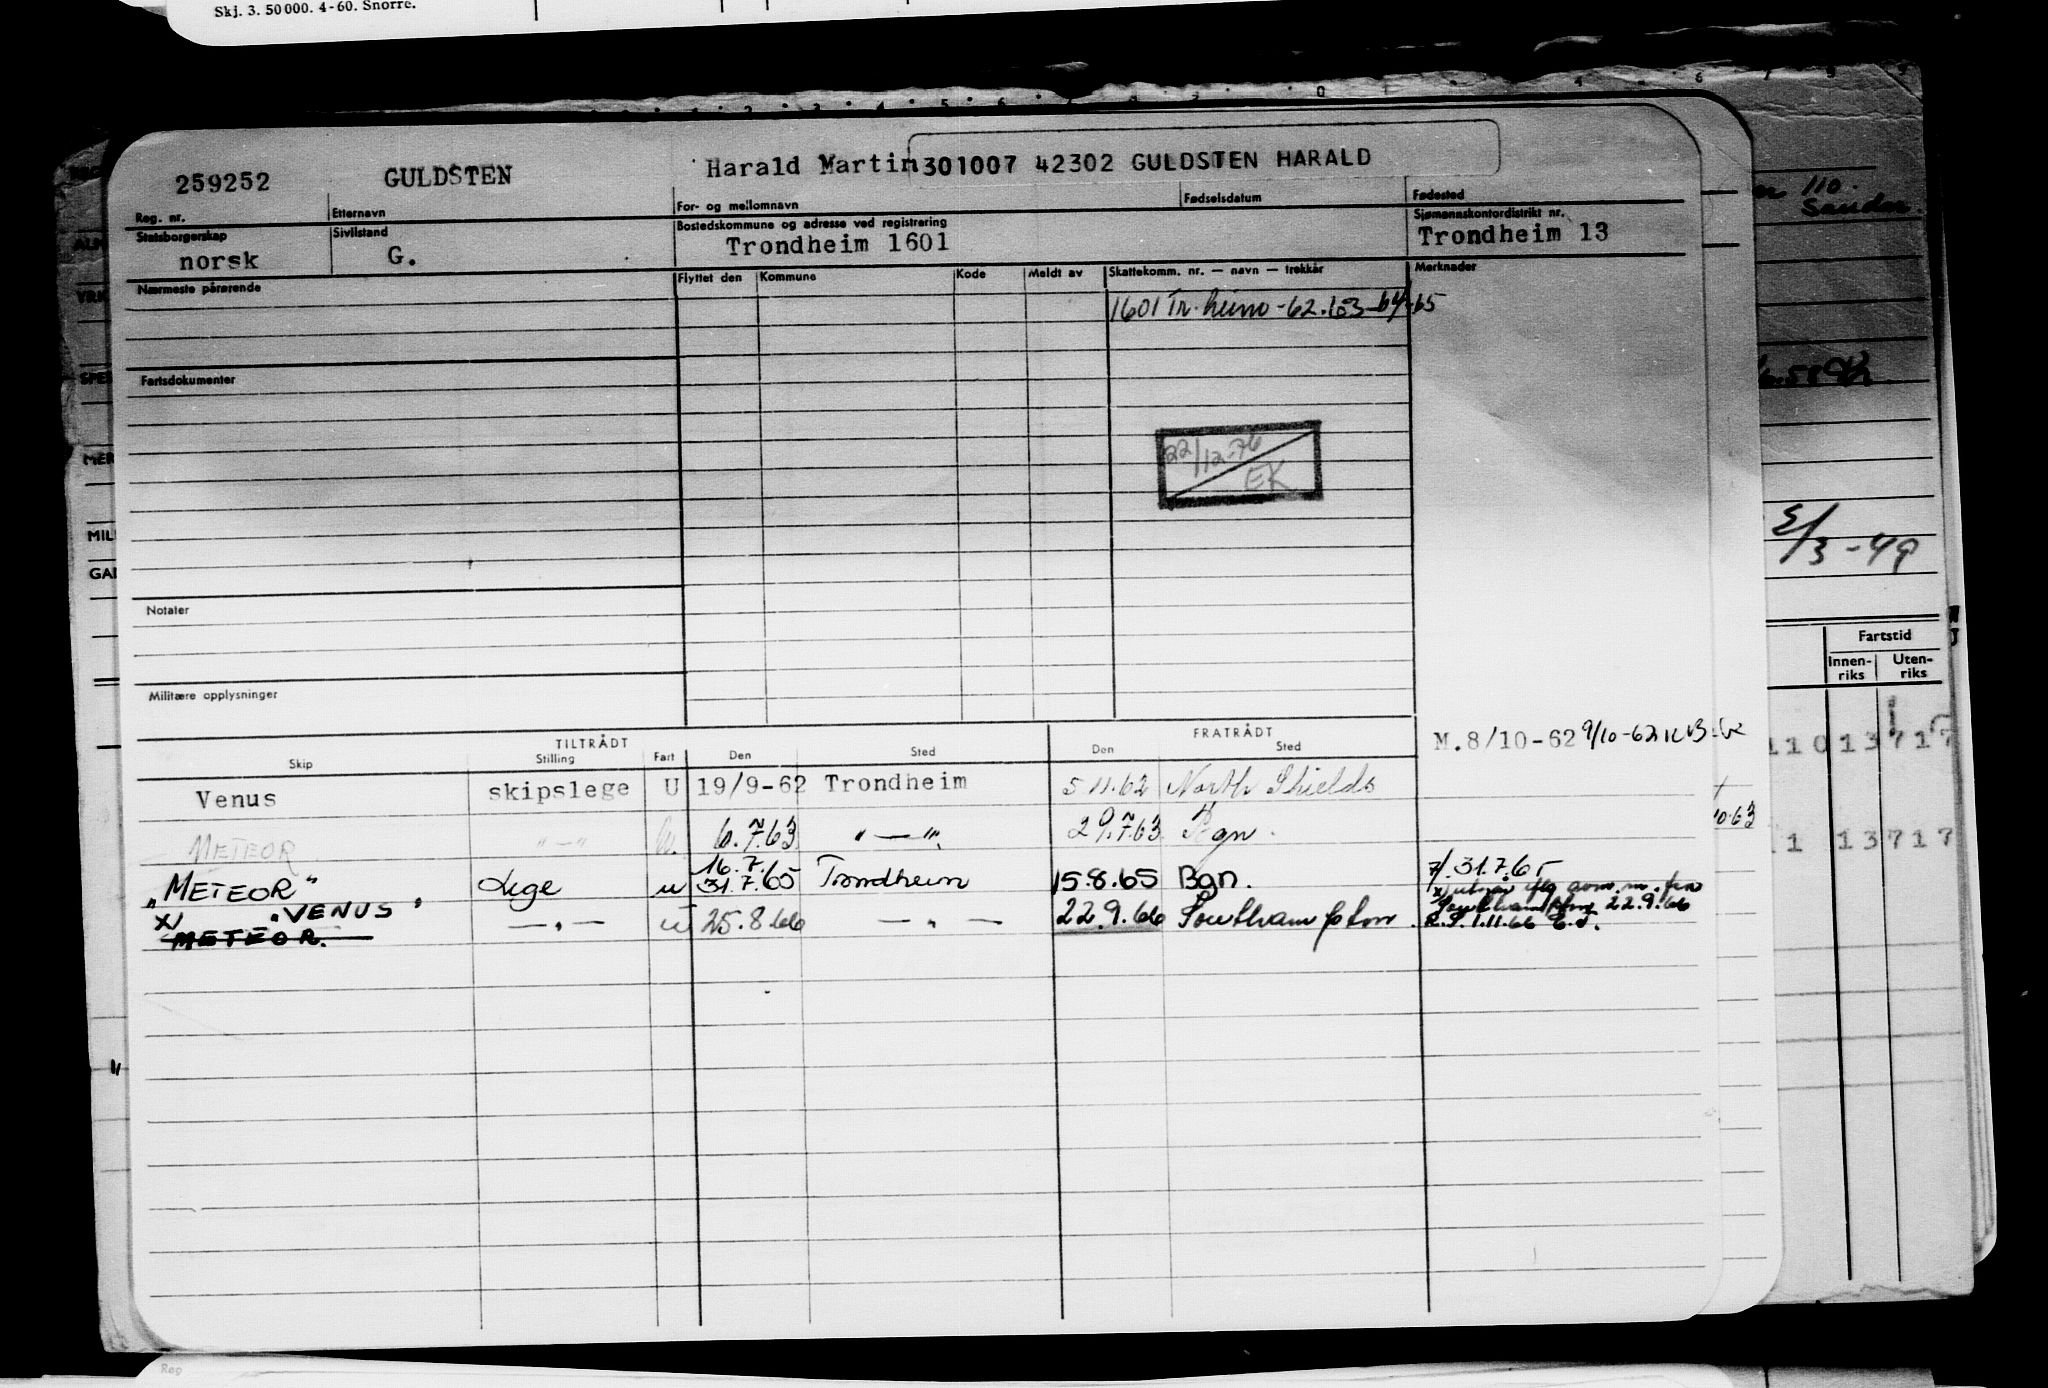 Skj. 3. 50000. 4-60. Snorre.
259252 GULDSTEN Harald Martin 301007 42302 GULDSTEN HARALD
Reg. nr. Etternavn For- og mellomnavn Fødselsdatum Fødested
Statsborgerskap Sivilstand Bostedskommune og adresse ved registrering Sjømannskontordistrikt nr.
norsk G. Trondheim 1601 Trondheim 13
Nærmeste pårørende Flyttet den Kommune Kode Meldt av Skattekomm. nr. — navn — trekkår Merknader
1601 Tr.heim -62.63-64-65
Fartsdokumenter
22/12-76
EK
Notater
Militære opplysninger
TILTRÅDT FRATRÅDT
Skip Stilling Fart Den Sted Den Sted
M.8/10-62 9/10-62
Venus skipslege U 19/9-62 Trondheim 5.11.62 North Shields
METEOR " — " U. 6.7.63 " — " 29.7.63 Bgn.
"METEOR" Lege u 16.7. 31.7.65 Trondheim 15.8.65 Bgn. 31.7.65
x) "VENUS" — " — u 25.8.66 — " — 22.9.66 Southampton
METEOR.
Southampton 22.9.66
1.11.66
110.
Sandm.
MIL
5/3-49
Fartstid
Innen-riks Uten-riks
110 13717
10.63
1 13717
Reg